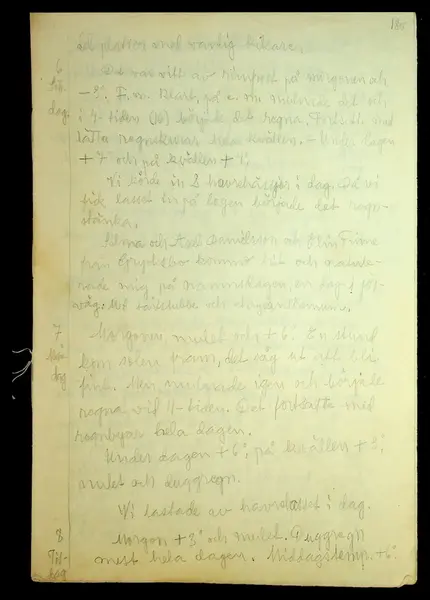 180
6 Sön-dag.
Det var vitt av rimfrost på morgonen och
-3°. F.m. klart, på e.m. mulnade det och
i 4-tiden började det regna. Fortsatte med
lätta regnskurar hela kvällen. - Under dagen
+7° och på kvällen +1°.
Vi körde in 2 havrehässjor i dag. Då vi
fick lasset in på logen började det regn-
stänka.
och Axel Danielsson och
från kommo hit och
mig på namnsdagen, en dag i för-
väg. Med och
7 Mån-dag
Morgonen mulet och +6°. En stund
kom solen fram, det såg ut att bli
fint. Men mulnade igen och började
regna vid 11-tiden. Det fortsatte med
regnbyar hela dagen.
Under dagen +6°, på kvällen +3°,
mulet och duggregn.
Vi lastade av havrelasset i dag.
8 Tis-dag
Morgon +3° och mulet. Duggregn
mest hela dagen. Middagstemp. +6°.